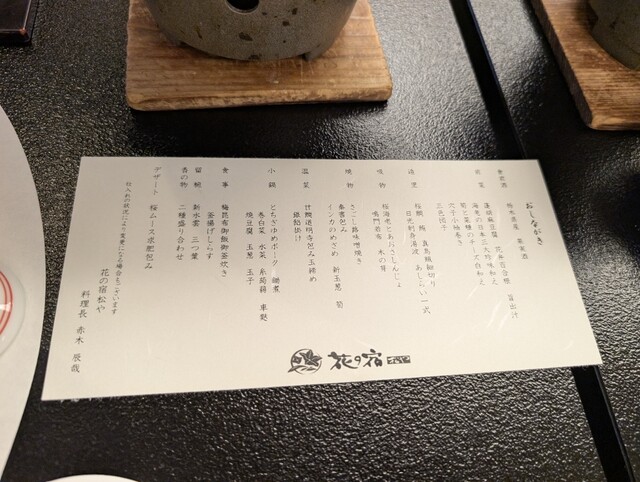 おしながき
食前酒 栃木県産 果実酒
前菜 蓬胡麻豆腐 花弁百合根 旨出汁
海老の日本三大珍味和え
筍と菜種のチーズ白和え
穴子小袖巻き
三色団子
造里 桜鯛 鮪 真烏賊細切り
日光刺身湯波 あしらい一式
吸物 桜海老とあおさしんじょ
鳴門若布 木の芽
焼物 さごし蕗味噌焼き
奉書包み
インカのめざめ 新玉葱 筍
温菜 甘鯛道明寺包み玉締め
銀餡掛け
小鍋 とちぎゆめポーク 鍋煮
巻白菜 水菜 糸蒟蒻 車麩
焼豆腐 玉葱 玉子
食事 梅昆布御飯御釜炊き
釜揚げしらす
留椀 新水雲 三つ葉
香の物 二種盛り合わせ
デザート 桜ムース求肥包み
仕入れの状況によって変更になる場合もございます
花の宿松や
料理長 赤木 辰哉
花の宿